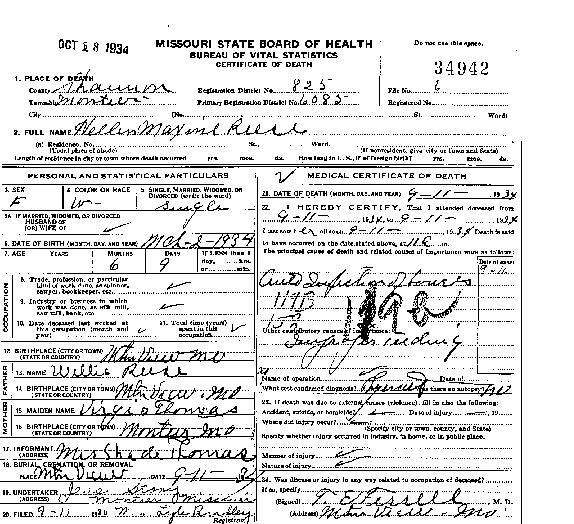 OCT 18 1934
MISSOURI STATE BOARD OF HEALTH
BUREAU OF VITAL STATISTICS
CERTIFICATE OF DEATH
Do not use this space.
34942
1. PLACE OF DEATH
County Shannon Registration District No. 825 File No. 6
Township Montier Primary Registration District No. 6085 Registered No.
City (No. St. Ward)
2. FULL NAME Hellen Maxine Reese
(a) Residence, No. St., Ward.
(Usual place of abode) (If nonresident, give city or town and State)
Length of residence in city or town where death occurred yrs. mos. ds. How long in U.S., if of foreign birth? yrs. mos. ds.
PERSONAL AND STATISTICAL PARTICULARS
3. SEX 4. COLOR OR RACE 5. SINGLE, MARRIED, WIDOWED, OR DIVORCED (write the word)
F W Single
5A. IF MARRIED, WIDOWED, OR DIVORCED
HUSBAND OF
(OR) WIFE OF
6. DATE OF BIRTH (MONTH, DAY, AND YEAR) Mch-2-1934
7. AGE YEARS MONTHS DAYS If LESS than 1 day, hrs. or min.
6 9
OCCUPATION
8. Trade, profession, or particular kind of work done, as spinner, sawyer, bookkeeper, etc.
9. Industry or business in which work was done, as silk mill, saw mill, bank, etc.
10. Date deceased last worked at this occupation (month and year)
11. Total time (years) spent in this occupation
12. BIRTHPLACE (CITY OR TOWN) Mtn View Mo
(STATE OR COUNTRY)
FATHER
13. NAME Willie Reese
14. BIRTHPLACE (CITY OR TOWN) Mtn View. Mo
(STATE OR COUNTRY)
MOTHER
15. MAIDEN NAME Virgie Thomas
16. BIRTHPLACE (CITY OR TOWN) Montier Mo
(STATE OR COUNTRY)
17. INFORMANT Mrs Thomas
(ADDRESS)
18. BURIAL, CREMATION, OR REMOVAL
PLACE Mtn View DATE 9-11-34
19. UNDERTAKER
(ADDRESS)
20. FILED 9-11 1934
Registrar
MEDICAL CERTIFICATE OF DEATH
21. DATE OF DEATH (MONTH, DAY, AND YEAR) 9-11-1934
22. I HEREBY CERTIFY, That I attended deceased from
9-11- 1934, to 9-11- 1934
I last saw her alive on 9-11- 1934 Death is said
to have occurred on the date stated above, at
The principal cause of death and related causes of importance were as follows:
Date of onset
9-11
Acute Infection of bowels
119B
119b
Other contributory causes of importance:
Improper feeding
Name of operation Date of
What test confirmed diagnosis? Was there an autopsy? No
23. If death was due to external causes (violence), fill in also the following:
Accident, suicide, or homicide? Date of injury 19
Where did injury occur?
(Specify city or town, county, and State)
Specify whether injury occurred in industry, in home, or in public place.
Manner of injury
Nature of injury
24. Was disease or injury in any way related to occupation of deceased?
If so, specify
(Signed) M. D.
(Address) Mtn View Mo.